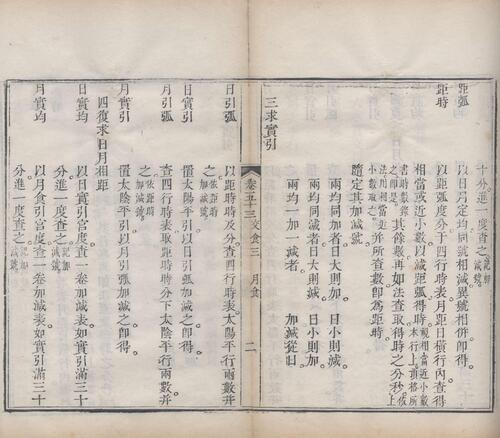 十分進一度查之記加減號
距弧
以日月定均同號相減異號相併卽得
距時
以距弧度分于四行時表月距日橫行內查得
相當或近小數以減距弧得時
書時數錄
之卽是
其餘數再如法查取得時之分秒
法用相當近
小數取之
并所查數卽為距時
隨定其加減號
兩均同加者日大則加
日小則減
兩均同減者日大則減
日小則加
兩均一加一減者
加減從日
三求實引
卷五十三交食三 月食
二
日引弧
以距時時及分查四行時表太陽平行兩數并
之依距時加減號
日實引
置太陽平引以日引弧加減之卽得
月引弧
查四行時表取距時時分下太陰平行兩數并
之依距時加減號
月實引
置太陰平引以月引弧加減之卽得
四復求日月相距
日實均
以日實引宮度查一卷加減表如實引滿三十
分進一度查之記加減號
月實均
以月食引宮度查一卷加減表如實引滿三十
分進一度查之記加減號